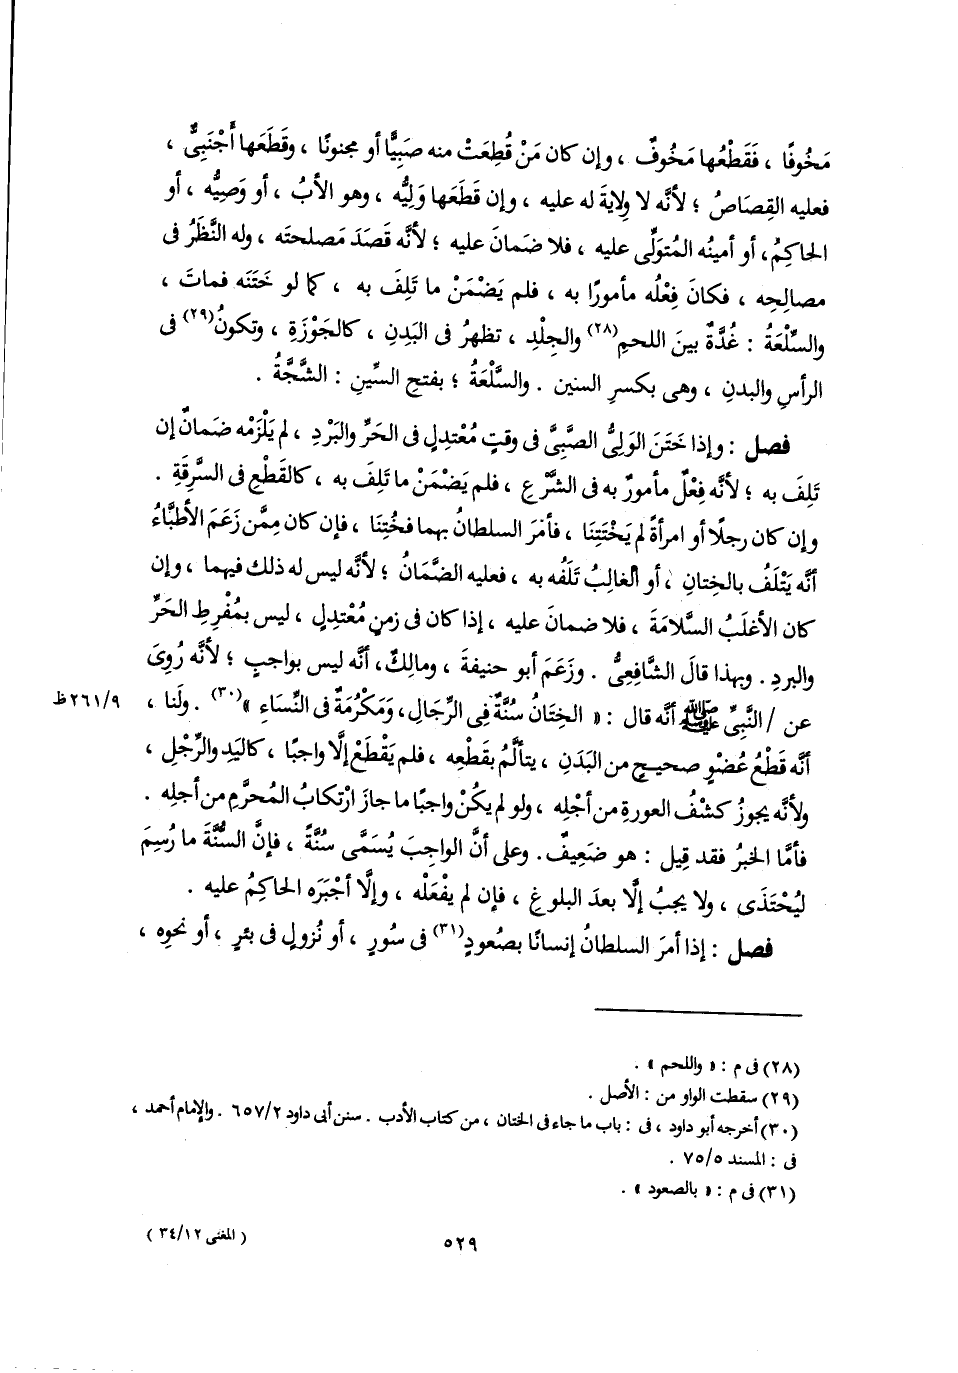 مَخُوفًا ، فَقَطْعُها مَخُوفٌ ، وإن كان مَنْ قُطِعَتْ منه صَبِيًّا أو مجنونًا ، وقَطَعَها أَجْنَبِىٌّ ،
فعليه القِصَاصُ ؛ لأنَّه لا وِلايةَ له عليه ، وإن قَطَعَها وَلِيُّه ، وهو الأبُ ، أو وَصِيُّه ، أو
الحاكِمُ ، أو أمينُه المُتوَلِّى عليه ، فلا ضَمانَ عليه ؛ لأنَّه قصَدَ مَصلحتَه ، وله النَّظَرُ فى
مصالِحِه ، فكانَ فِعْلُه مأمورًا به ، فلم يَضْمَنْ ما تَلِفَ به ، كما لو خَتَنَه فماتَ ،
والسِّلْعَةُ : غُدَّةٌ بينَ اللحمِ(٢٨) والجِلْدِ ، تظهرُ فى البَدنِ ، كالجَوْزَةِ ، وتكونُ(٢٩) فى
الرأسِ والبدنِ ، وهى بكسرِ السنين . والسَّلْعَةُ ؛ بفتحِ السِّينِ : الشَّجَّةُ .
فصل : وإذا خَتَنَ الوَلِىُّ الصَّبِىَّ فى وقتٍ مُعْتدِلٍ فى الحَرِّ والبَرْدِ ، لم يَلْزَمْه ضَمانٌ إن
تَلِفَ به ؛ لأنَّه فِعْلٌ مأمورٌ به فى الشَّرْعِ ، فلم يَضْمَنْ ما تَلِفَ به ، كالقَطْعِ فى السَّرِقَةِ .
وإن كان رجلًا أو امرأةً لم يَخْتَتِنَا ، فأمَر السلطانُ بهما فخُتِنَا ، فإن كان مِمَّن زَعَمَ الأطِبَّاءُ
أنَّه يَتْلَفُ بالخِتانِ ، أو الغالِبُ تَلَفُه به ، فعليه الضَّمَانُ ؛ لأنَّه ليس له ذلك فيهما ، وإن
كان الأغلَبُ السَّلامَةَ ، فلا ضمانَ عليه ، إذا كان فى زمنٍ مُعْتدِلٍ ، ليس بمُفْرِطِ الحَرِّ
والبردِ . وبهذا قالَ الشَّافِعِىُّ . وزَعَمَ أبو حنيفةَ ، ومالِكٌ ، أنَّه ليس بواجبٍ ؛ لأنَّه رُوِىَ
عن /النَّبِىِّ ﷺ أنَّه قال : « الخِتَانُ سُنَّةٌ فِى الرِّجَالِ ، وَمَكْرُمَةٌ فى النِّسَاءِ »(٣٠) . ولَنا ،
٢٦١/٩ظ
أنَّه قَطْعُ عُضْوٍ صحيحٍ من البَدَنِ ، يتألَّمُ بقَطْعِه ، فلم يَقْطَعْ إلَّا واجبًا ، كاليَدِ والرِّجْلِ ،
ولأنَّه يجوزُ كشْفُ العورةِ من أجْلِه ، ولو لم يكُنْ واجبًا ما جازَ ارْتكابُ المُحرَّمِ من أجلِه .
فأمَّا الخبرُ فقد قِيل : هو ضَعِيفٌ . وعلى أنَّ الواجِبَ يُسَمَّى سُنَّةً ، فإنَّ السُّنَّةَ ما رُسِمَ
ليُحْتَذَى ، ولا يجبُ إلَّا بعدَ البلوغِ ، فإن لم يفْعَلْه ، وإلَّا أجْبَرَه الحاكِمُ عليه .
فصل : إذا أمرَ السلطانُ إنسانًا بصُعودٍ(٣١) فى سُورٍ ، أو نُزولٍ فى بئرٍ ، أو نحوِه ،
(٢٨) فى م : « واللحم » .
(٢٩) سقطت الواو من : الأصل .
(٣٠) أخرجه أبو داود ، فى : باب ما جاء فى الختان ، من كتاب الأدب . سنن أبى داود ٦٥٧/٢ . والإمام أحمد ،
فى : المسند ٧٥/٥ .
(٣١) فى م : « بالصعود » .
٥٢٩
( المغنى ٣٤/١٢ )